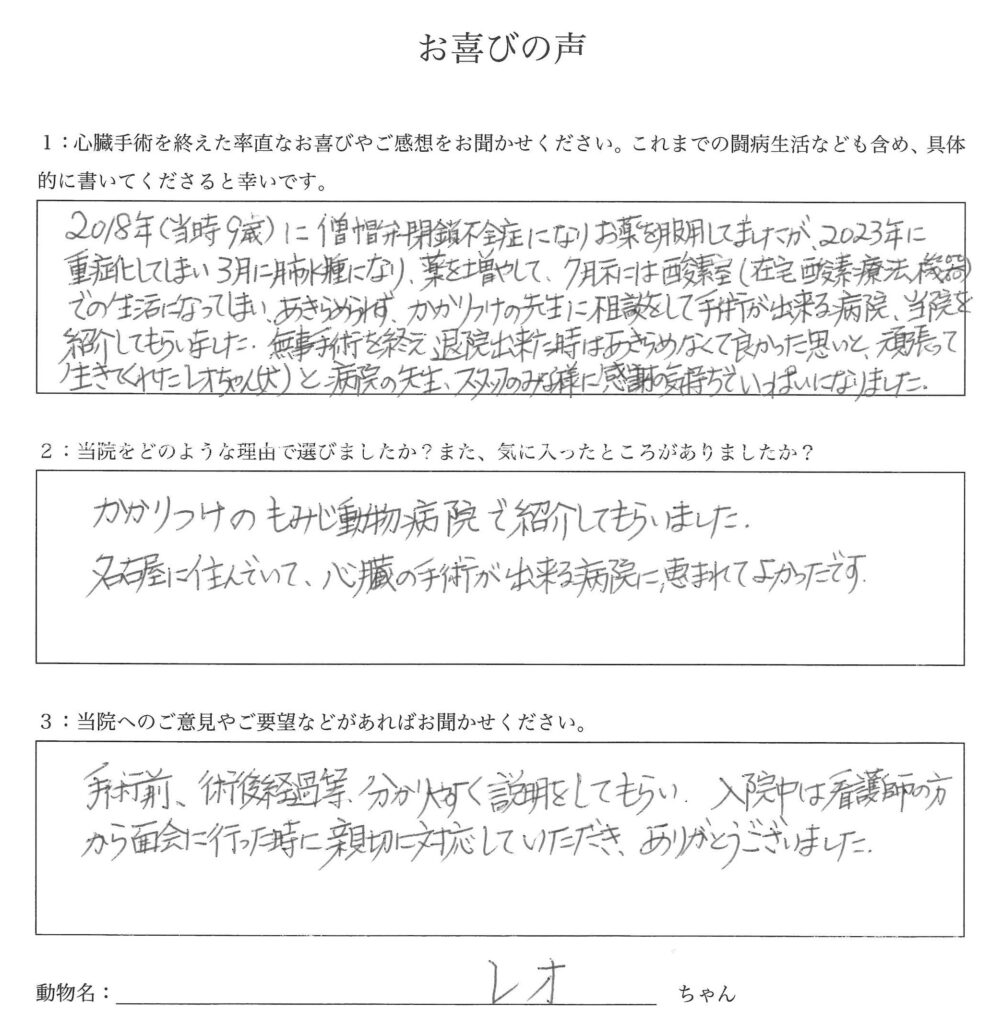 お喜びの声
1：心臓手術を終えた率直なお喜びやご感想をお聞かせください。これまでの闘病生活なども含め、具体
的に書いてくださると幸いです。
2018年(当時9歳)に僧帽弁閉鎖不全症になりお薬を服用してましたが、2023年に
重症化してしまい3月に肺水腫になり、薬を増やして、7月末には酸素室(在宅酸素療法機器)
での生活になってしまい、あきらめられず、かかりつけの先生に相談をして手術が出来る病院、当院を
紹介してもらいました. 無事手術を終え退院出来た時はあきらめなくて良かった思いと、頑張って
生きてくれたレオちゃん(犬)と病院の先生、スタッフのみな様に感謝の気持ちでいっぱいになりました.
2：当院をどのような理由で選びましたか？また、気に入ったところがありましたか？
かかりつけのもみじ動物病院で紹介してもらいました.
名古屋に住んでいて、心臓の手術が出来る病院に恵まれてよかったです.
3：当院へのご意見やご要望などがあればお聞かせください。
手術前、術後経過等、分かりやすく説明をしてもらい. 入院中は看護師の方
から面会に行った時に親切に対応していただき、ありがとうございました.
動物名： レオ ちゃん